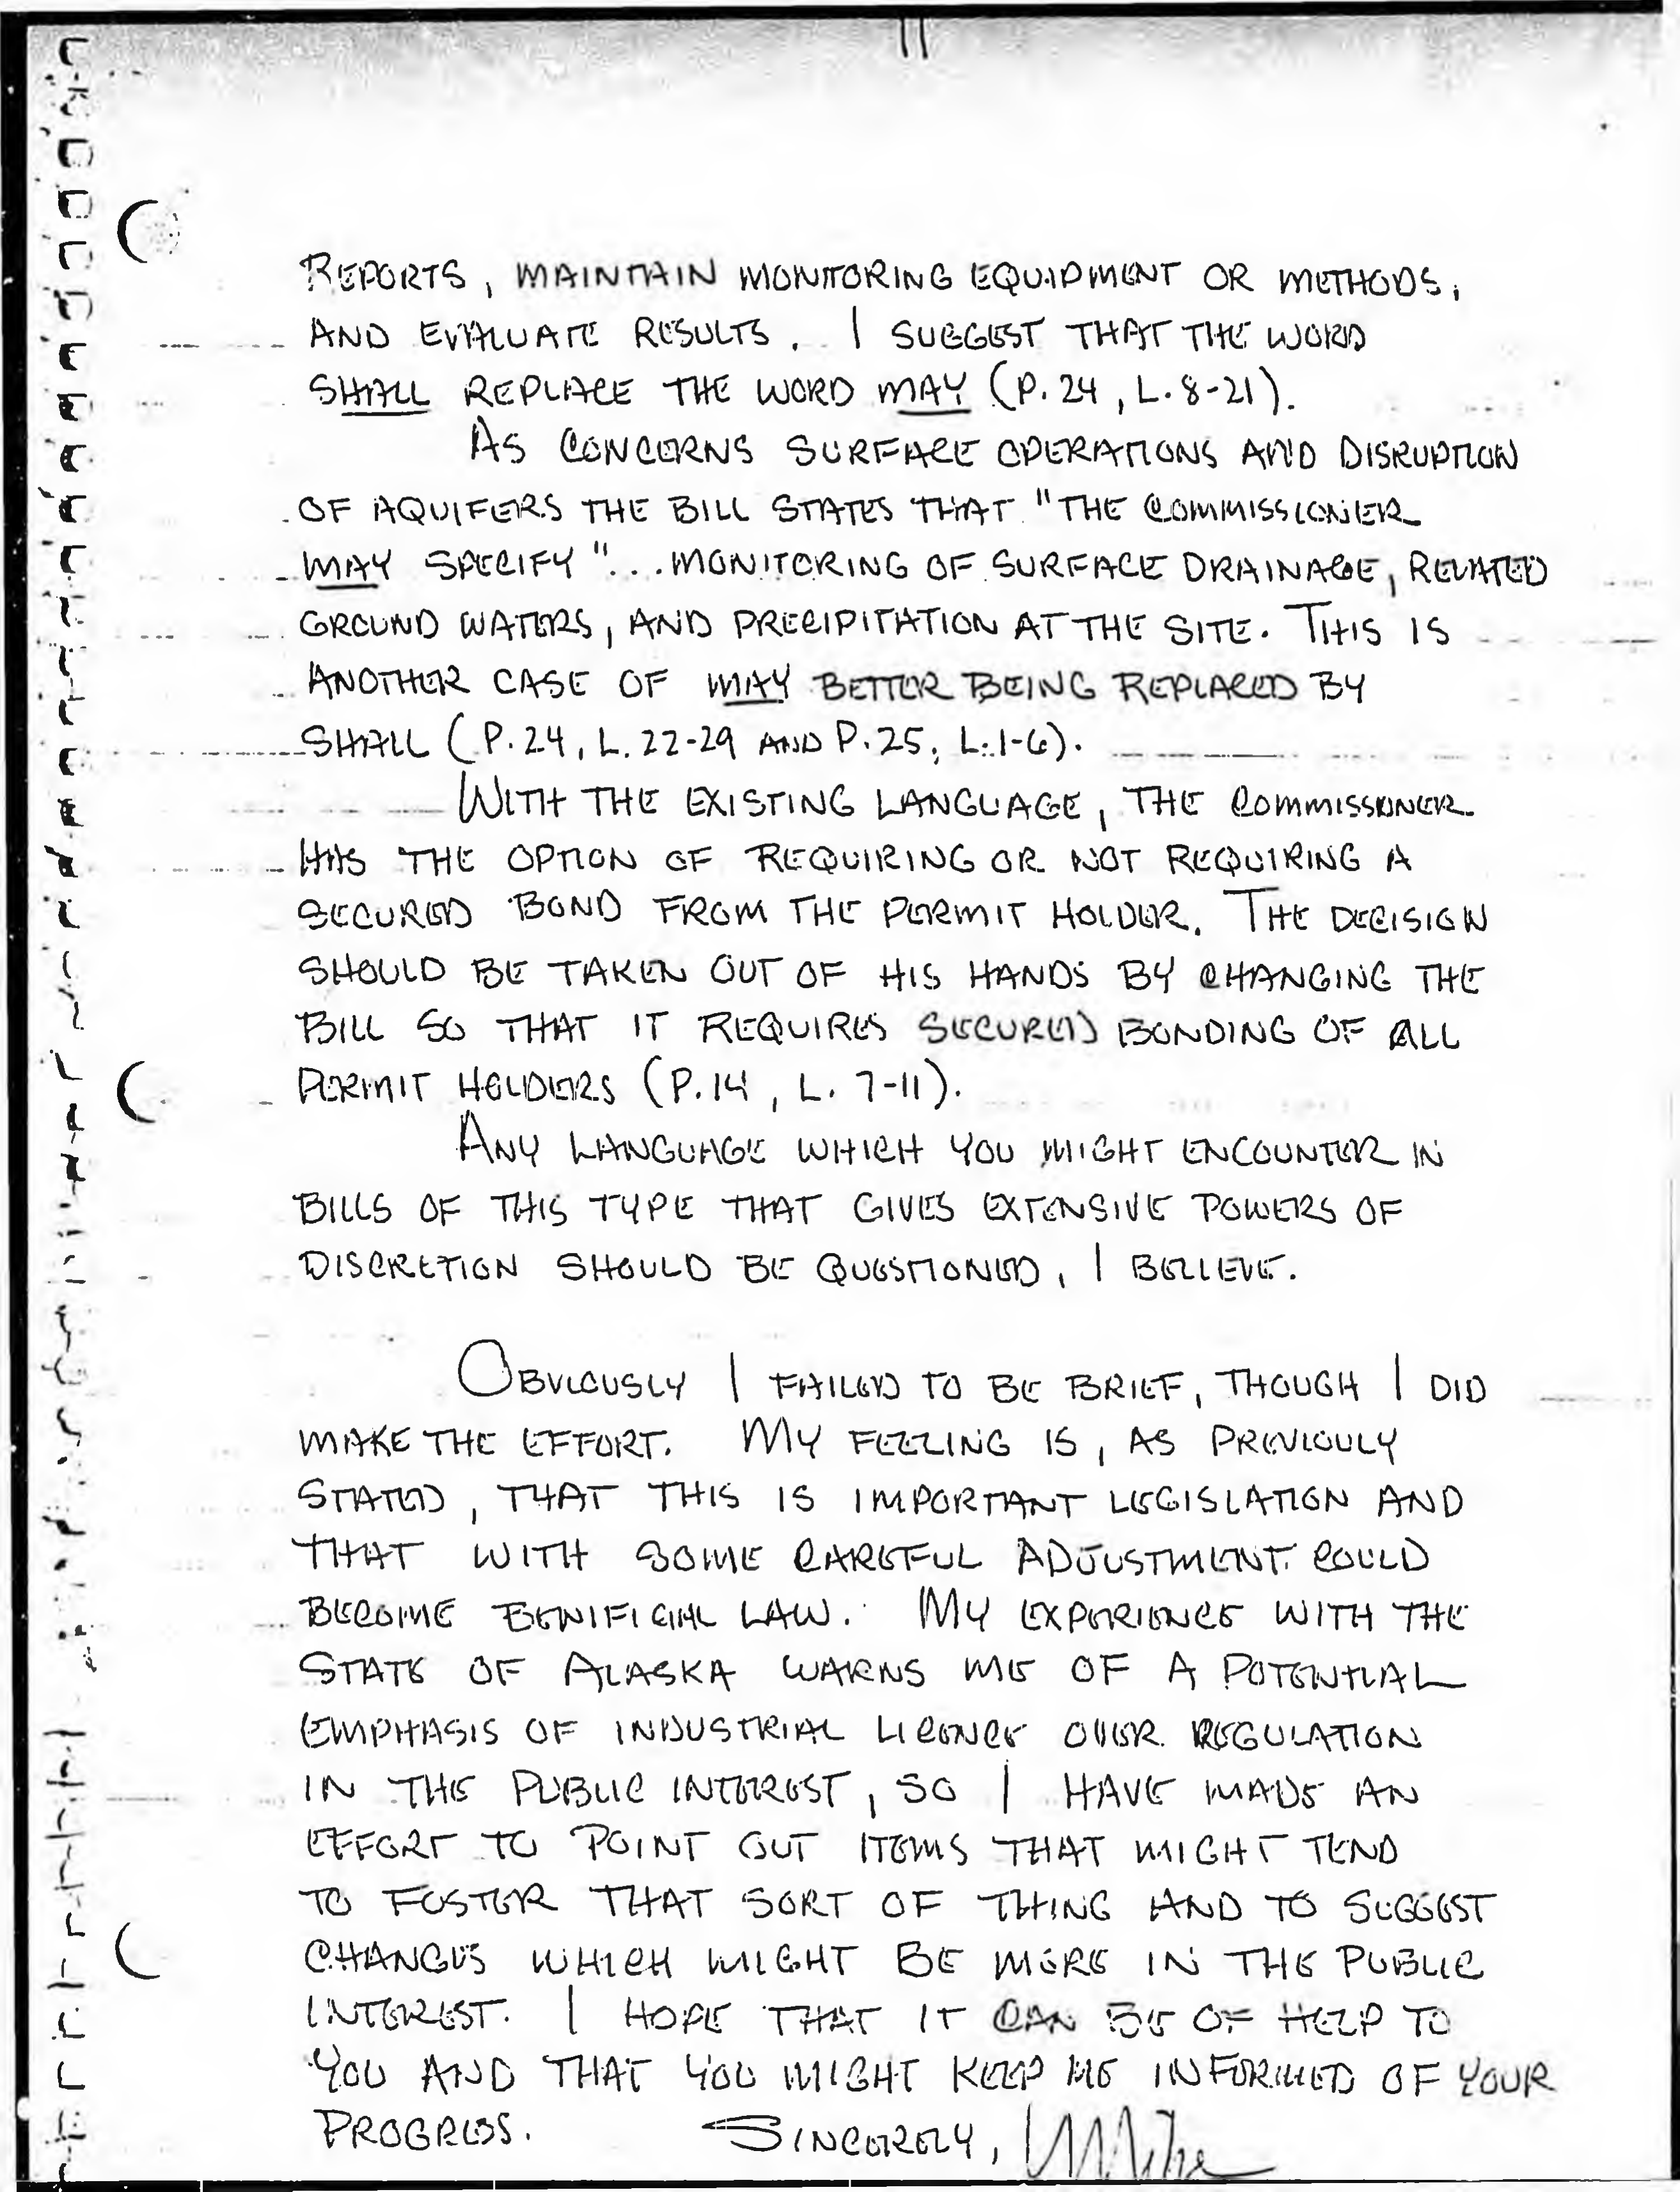 11
REPORTS, MAINTAIN MONITORING EQUIPMENT OR METHODS,
AND EVALUATE RESULTS. I SUGGEST THAT THE WORD
SHALL REPLACE THE WORD MAY (P. 24, L. 8-21).
AS CONCERNS SURFACE OPERATIONS AND DISRUPTION
OF AQUIFERS THE BILL STATES THAT "THE COMMISSIONER
MAY SPECIFY"... MONITORING OF SURFACE DRAINAGE, RELATED
GROUND WATERS, AND PRECIPITATION AT THE SITE. THIS IS
ANOTHER CASE OF MAY BETTER BEING REPLACED BY
SHALL (P. 24, L. 22-29 AND P. 25, L. 1-6).
WITH THE EXISTING LANGUAGE, THE COMMISSIONER
HAS THE OPTION OF REQUIRING OR NOT REQUIRING A
SECURED BOND FROM THE PERMIT HOLDER. THE DECISION
SHOULD BE TAKEN OUT OF HIS HANDS BY CHANGING THE
BILL SO THAT IT REQUIRES SECURED BONDING OF ALL
PERMIT HOLDERS (P. 14, L. 7-11).
ANY LANGUAGE WHICH YOU MIGHT ENCOUNTER IN
BILLS OF THIS TYPE THAT GIVES EXTENSIVE POWERS OF
DISCRETION SHOULD BE QUESTIONED, I BELIEVE.
OBVIOUSLY I FAILED TO BE BRIEF, THOUGH I DID
MAKE THE EFFORT. MY FEELING IS, AS PREVIOULY
STATED, THAT THIS IS IMPORTANT LEGISLATION AND
THAT WITH SOME CAREFUL ADJUSTMENT COULD
BECOME BENIFICIAL LAW. MY EXPERIENCE WITH THE
STATE OF ALASKA WARNS ME OF A POTENTIAL
EMPHASIS OF INDUSTRIAL LICENCE OVER REGULATION
IN THE PUBLIC INTEREST, SO I HAVE MADE AN
EFFORT TO POINT OUT ITEMS THAT MIGHT TEND
TO FOSTER THAT SORT OF THING AND TO SUGGEST
CHANGES WHICH MIGHT BE MORE IN THE PUBLIC
INTEREST. I HOPE THAT IT CAN BE OF HELP TO
YOU AND THAT YOU MIGHT KEEP ME INFORMED OF YOUR
PROGRESS. SINCERELY, Mike